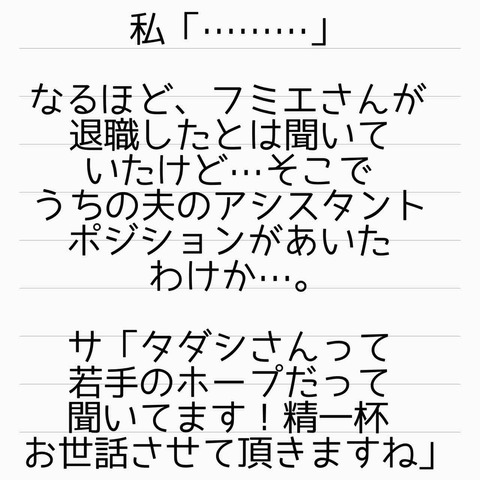 私「………」
なるほど、フミエさんが
退職したとは聞いて
いたけど…そこで
うちの夫のアシスタント
ポジションがあいた
わけか…。
サ「タダシさんって
若手のホープだって
聞いてます！精一杯
お世話させて頂きますね」